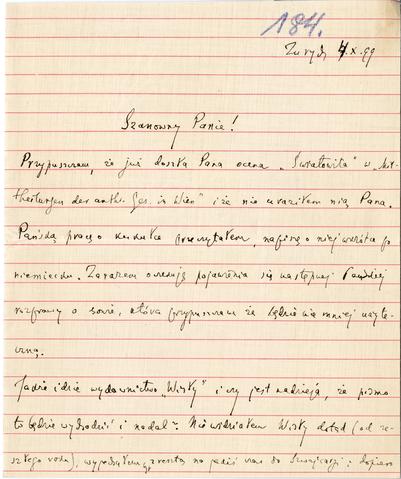 184.
Zurych 4.X.99
Szanowny Panie!
Przypuszczam, że już doszła Pana ocena „Światowita" w „Mit-
theilungen der anthr. Ges. in Wien" i że nie uraziłem nią Pana.
Pańską pracę o kukułce przeczytałem, napiszę o niej wkrótce po
niemiecku. Zarazem oczekuję pojawienia się następnej Pańskiej
rozprawy o sowie, która przypuszczam że będzie nie mniej użyte-
czną.
idzie wydawnictwo „Wisły" i czy jest nadzieja, że pismo
to będzie wychodzić i nadal? Nie widziałem Wisły dotąd (od ze-
szłego roku), zresztą na do i dopiero